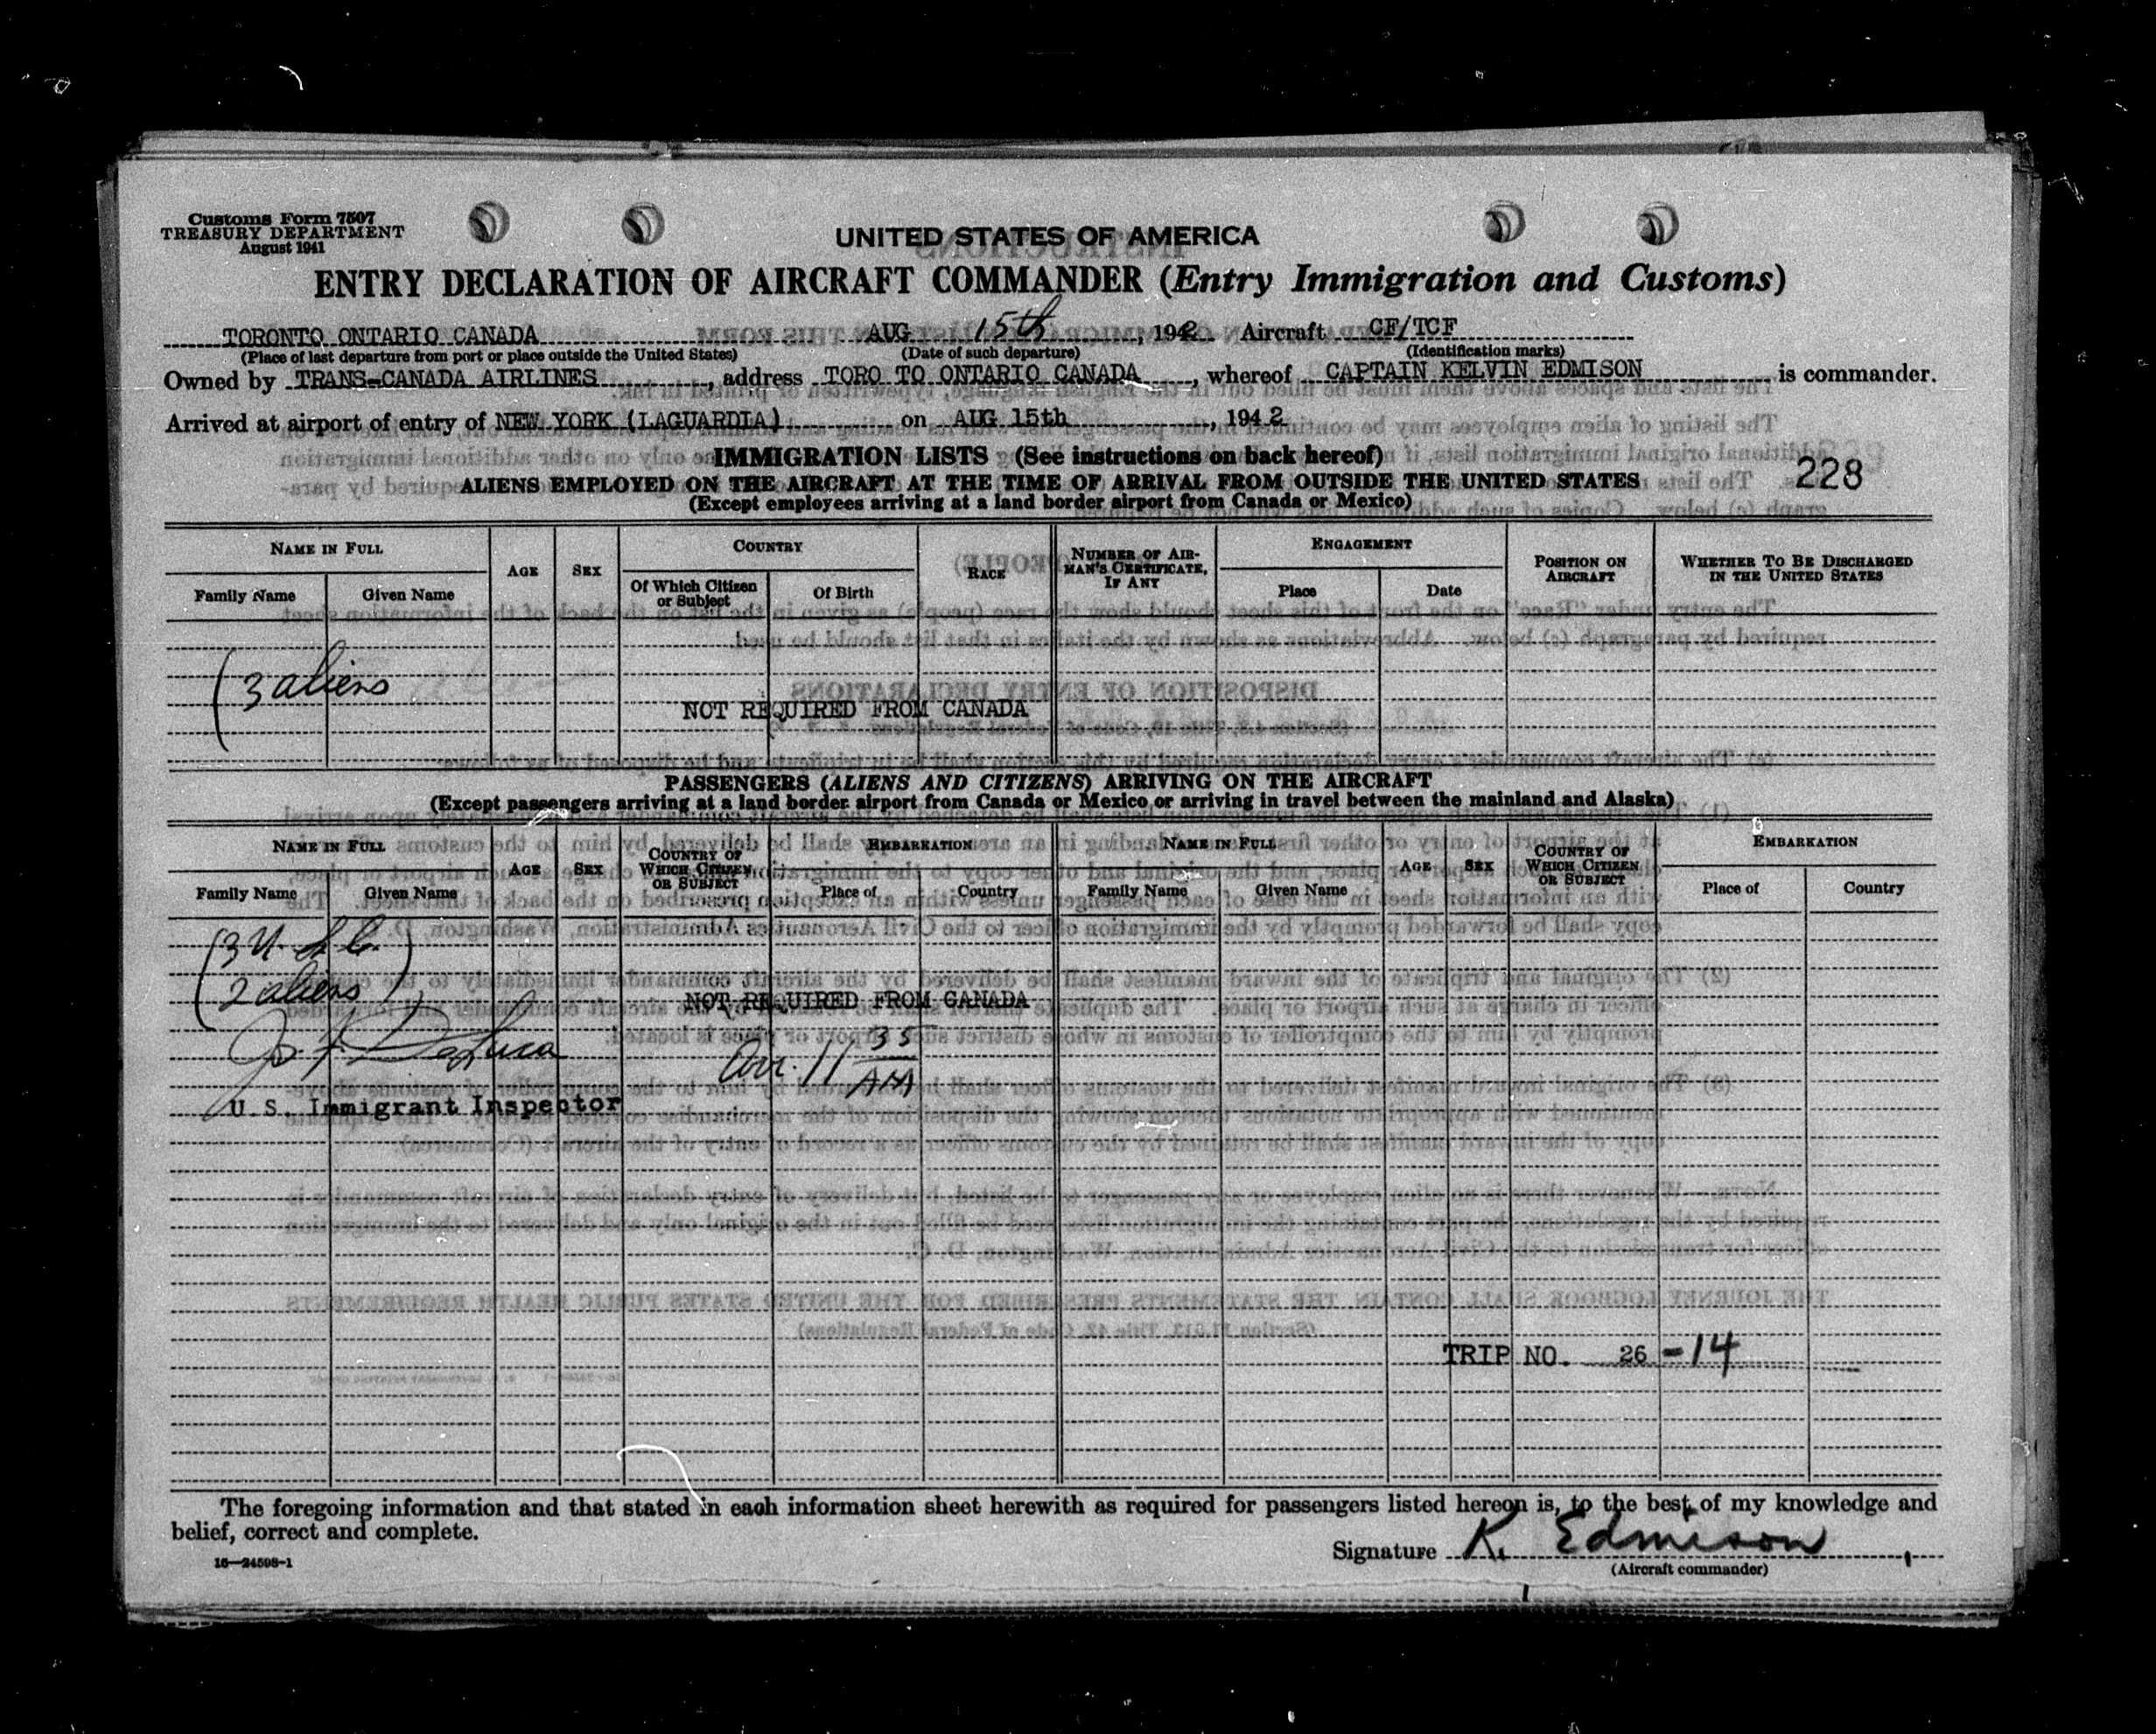 Customs Form 7507
TREASURY DEPARTMENT
August 1941
UNITED STATES OF AMERICA
ENTRY DECLARATION OF AIRCRAFT COMMANDER (Entry Immigration and Customs)
TORONTO ONTARIO CANADA AUG 15th, 1942 Aircraft CF/TCF
(Place of last departure from port or place outside the United States) (Date of such departure) (Identification marks)
Owned by TRANS-CANADA AIRLINES, address TORO TO ONTARIO CANADA, whereof CAPTAIN KELVIN EDMISON is commander.
Arrived at airport of entry of NEW YORK (LAGUARDIA) on AUG 15th, 1942
IMMIGRATION LISTS (See instructions on back hereof)
228
ALIENS EMPLOYED ON THE AIRCRAFT AT THE TIME OF ARRIVAL FROM OUTSIDE THE UNITED STATES
(Except employees arriving at a land border airport from Canada or Mexico)
NAME IN FULL AGE SEX COUNTRY RACE NUMBER OF AIRMAN'S CERTIFICATE, IF ANY ENGAGEMENT POSITION ON AIRCRAFT WHETHER TO BE DISCHARGED IN THE UNITED STATES
Family Name Given Name Of Which Citizen or Subject Of Birth Place Date
(3 aliens
NOT REQUIRED FROM CANADA
PASSENGERS (ALIENS AND CITIZENS) ARRIVING ON THE AIRCRAFT
(Except passengers arriving at a land border airport from Canada or Mexico or arriving in travel between the mainland and Alaska)
NAME IN FULL AGE SEX COUNTRY OF WHICH CITIZEN OR SUBJECT EMBARKATION NAME IN FULL AGE SEX COUNTRY OF WHICH CITIZEN OR SUBJECT EMBARKATION
Family Name Given Name Place of Country Family Name Given Name Place of Country
(3 U.S.C.)
(2 aliens)
NOT REQUIRED FROM CANADA
Arr. 11 35 AM
U.S. Immigrant Inspector
TRIP NO. 26 -14
The foregoing information and that stated in each information sheet herewith as required for passengers listed hereon is, to the best of my knowledge and
belief, correct and complete.
Signature K. Edmison
16—24598-1
(Aircraft commander)